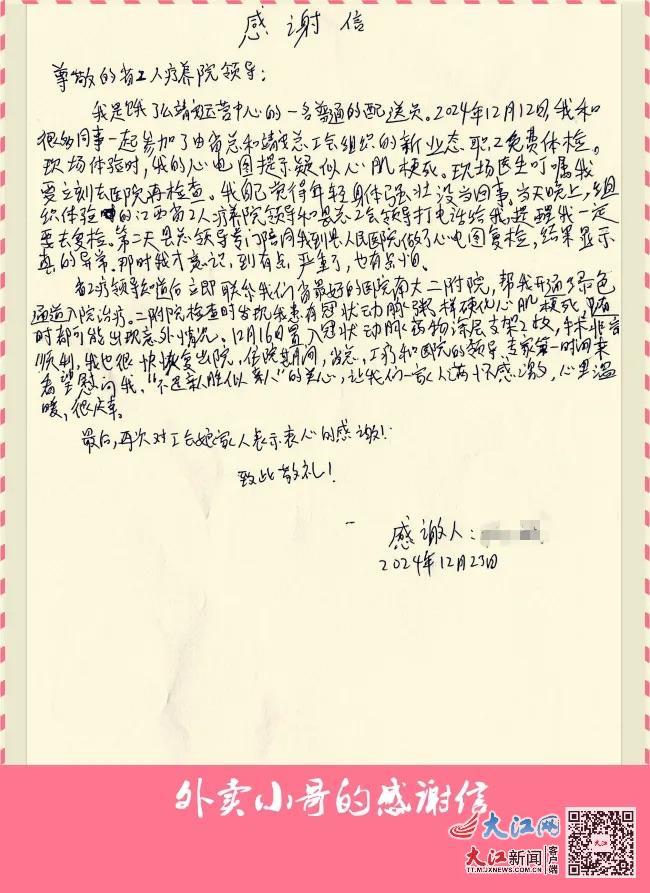 感谢信
尊敬的省工人疗养院领导：
我是饿了么靖安运营中心的一名普通的配送员。2024年12月12日，我和
很多同事一起参加了由省总和靖安总工会组织的新业态职工免费体检。
现场体验时，我的心电图提示疑似心肌梗死。现场医生叮嘱我
要立刻去医院再检查。我自己觉得年轻身体强壮没当回事。当天晚上，组
织体验的江西省工人疗养院领导和县总工会领导打电话给我提醒我一定
要去复检。第二天县总领导专门陪同我到县人民医院做了心电图复检，结果显示
真的异常。那时我才意识到有点严重了，也有点怕。
省工疗领导知道后立即联系我们省最好的医院南大二附院，帮我开通了绿色
通道入院治疗。二附院检查时发现我患有冠状动脉粥样硬化心肌梗死，随
时都可能出现意外情况。12月16日置入冠状动脉药物涂层支架2枚，手术非常
顺利，我也很快恢复出院，住院期间，省总、工疗和医院的领导、专家第一时间来
看望慰问我，"不是亲人胜似亲人"的关心，让我们一家人满怀感激，心里温
暖，很庆幸。
最后，再次对工会娘家人表示衷心的感谢！
致此敬礼！
感谢人：
2024年12月23日
外卖小哥的感谢信
大江网
大江新闻 客户端
TT.M.JXNEWS.COM.CN
大江